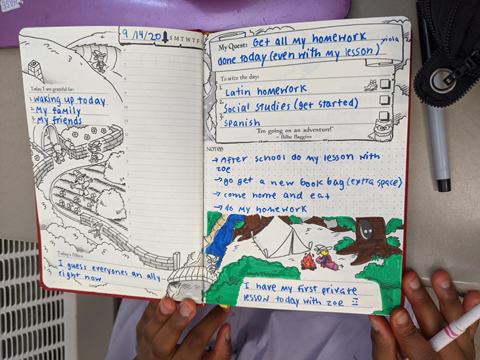 9/14/20
S M T W T F S
Today I am grateful for:
1. waking up today
2. My family
3. My friends
Today's Allies:
I guess everyones an ally
right now
My Quest: Get all my homework
done today (even with my lesson) viola
To write the day:
1. Latin homework
2. Social studies (get started)
3. Spanish
"I'm going on an adventure!"
– Bilbo Baggins
NOTES
→ After school do my lesson with
zoe
→ go get a new book bag (extra space)
→ come home and eat
→ do my homework
I have my first private
lesson today with zoe :)